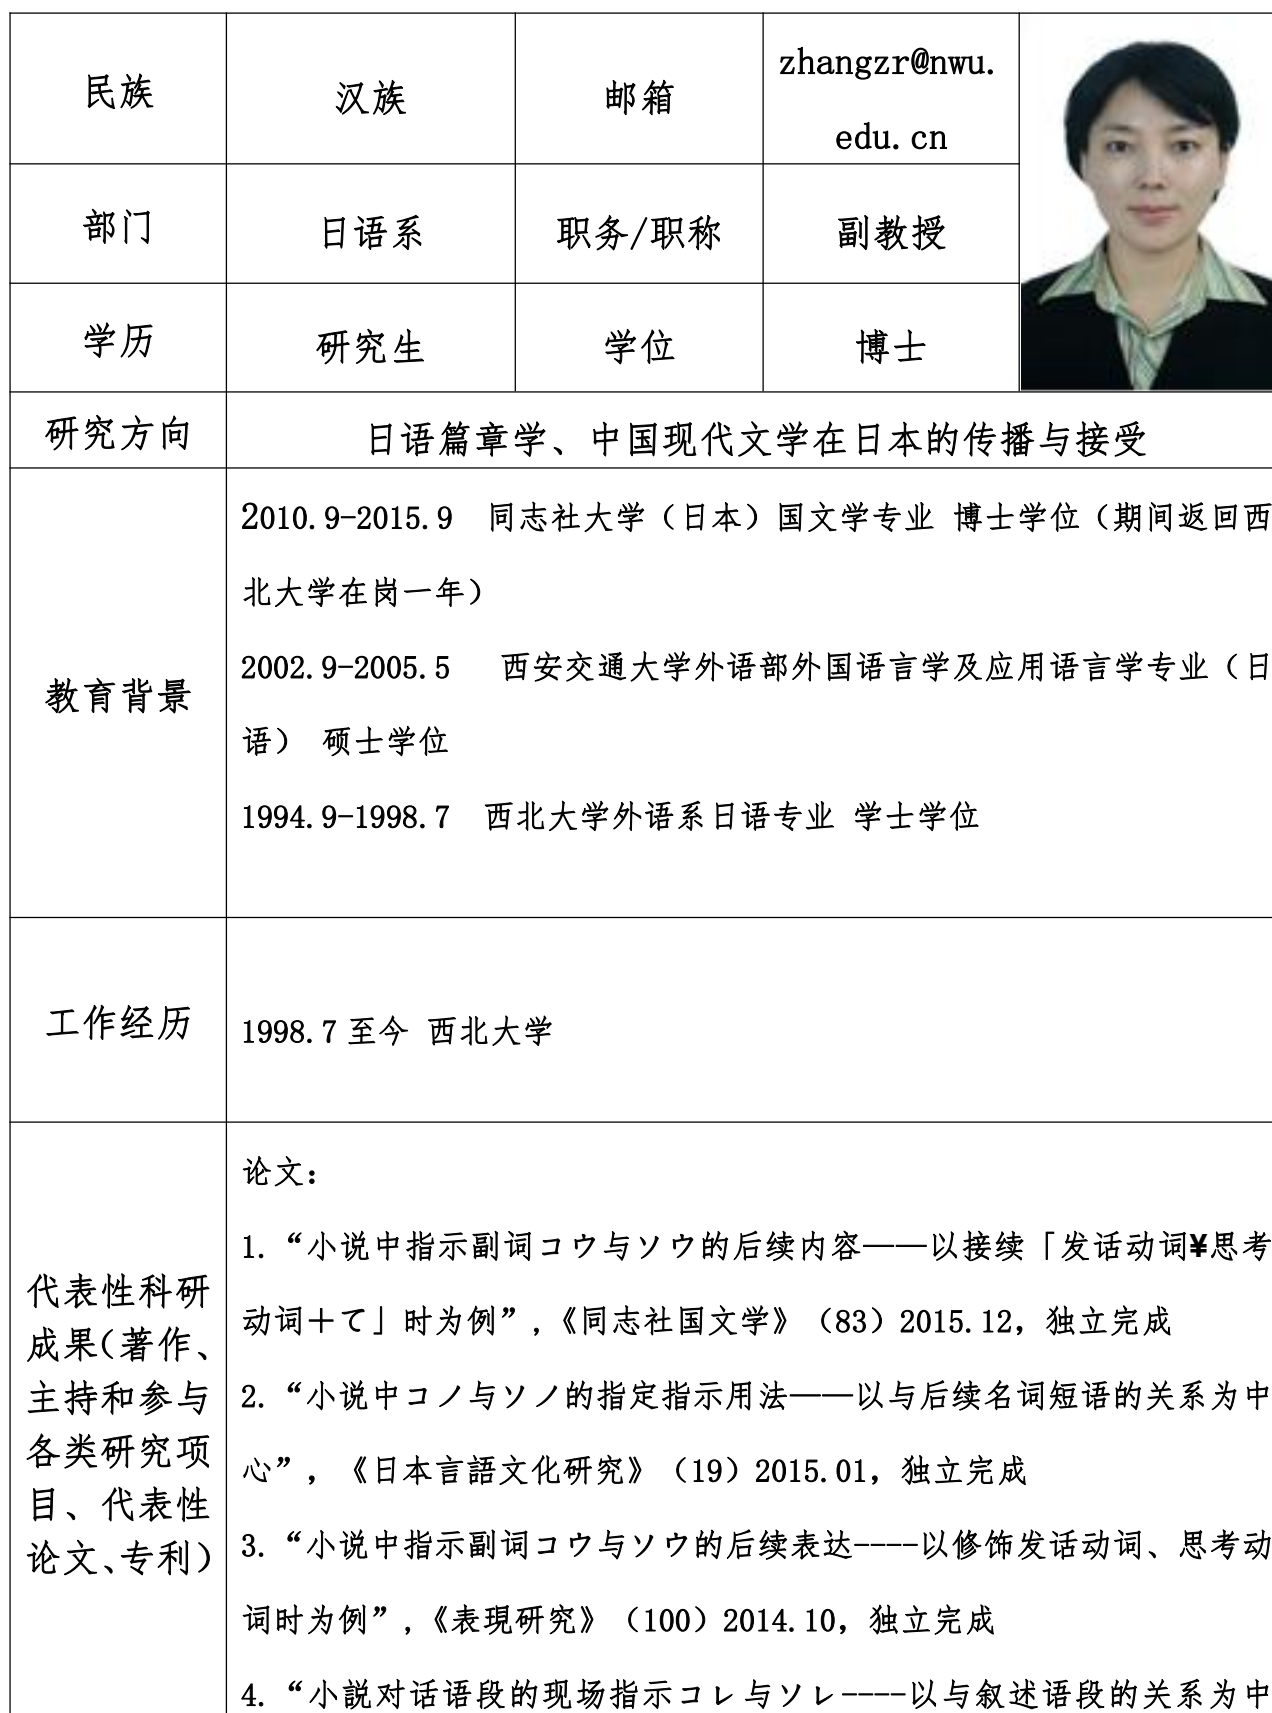 民族 汉族 邮箱 zhangzr@nwu.
edu.cn
部门 日语系 职务/职称 副教授
学历 研究生 学位 博士
研究方向 日语篇章学、中国现代文学在日本的传播与接受
教育背景
2010.9-2015.9 同志社大学（日本）国文学专业 博士学位（期间返回西
北大学在岗一年）
2002.9-2005.5 西安交通大学外语部外国语言学及应用语言学专业（日
语） 硕士学位
1994.9-1998.7 西北大学外语系日语专业 学士学位
工作经历 1998.7 至今 西北大学
代表性科研
成果（著作、
主持和参与
各类研究项
目、代表性
论文、专利）
论文：
1.“小说中指示副词コウ与ソウ的后续内容——以接续「发话动词¥思考
动词＋て」时为例”,《同志社国文学》（83）2015.12，独立完成
2.“小说中コノ与ソノ的指定指示用法——以与后续名词短语的关系为中
心”，《日本言語文化研究》（19）2015.01，独立完成
3.“小说中指示副词コウ与ソウ的后续表达----以修饰发话动词、思考动
词时为例”,《表現研究》（100）2014.10，独立完成
4.“小説对话语段的现场指示コレ与ソレ----以与叙述语段的关系为中